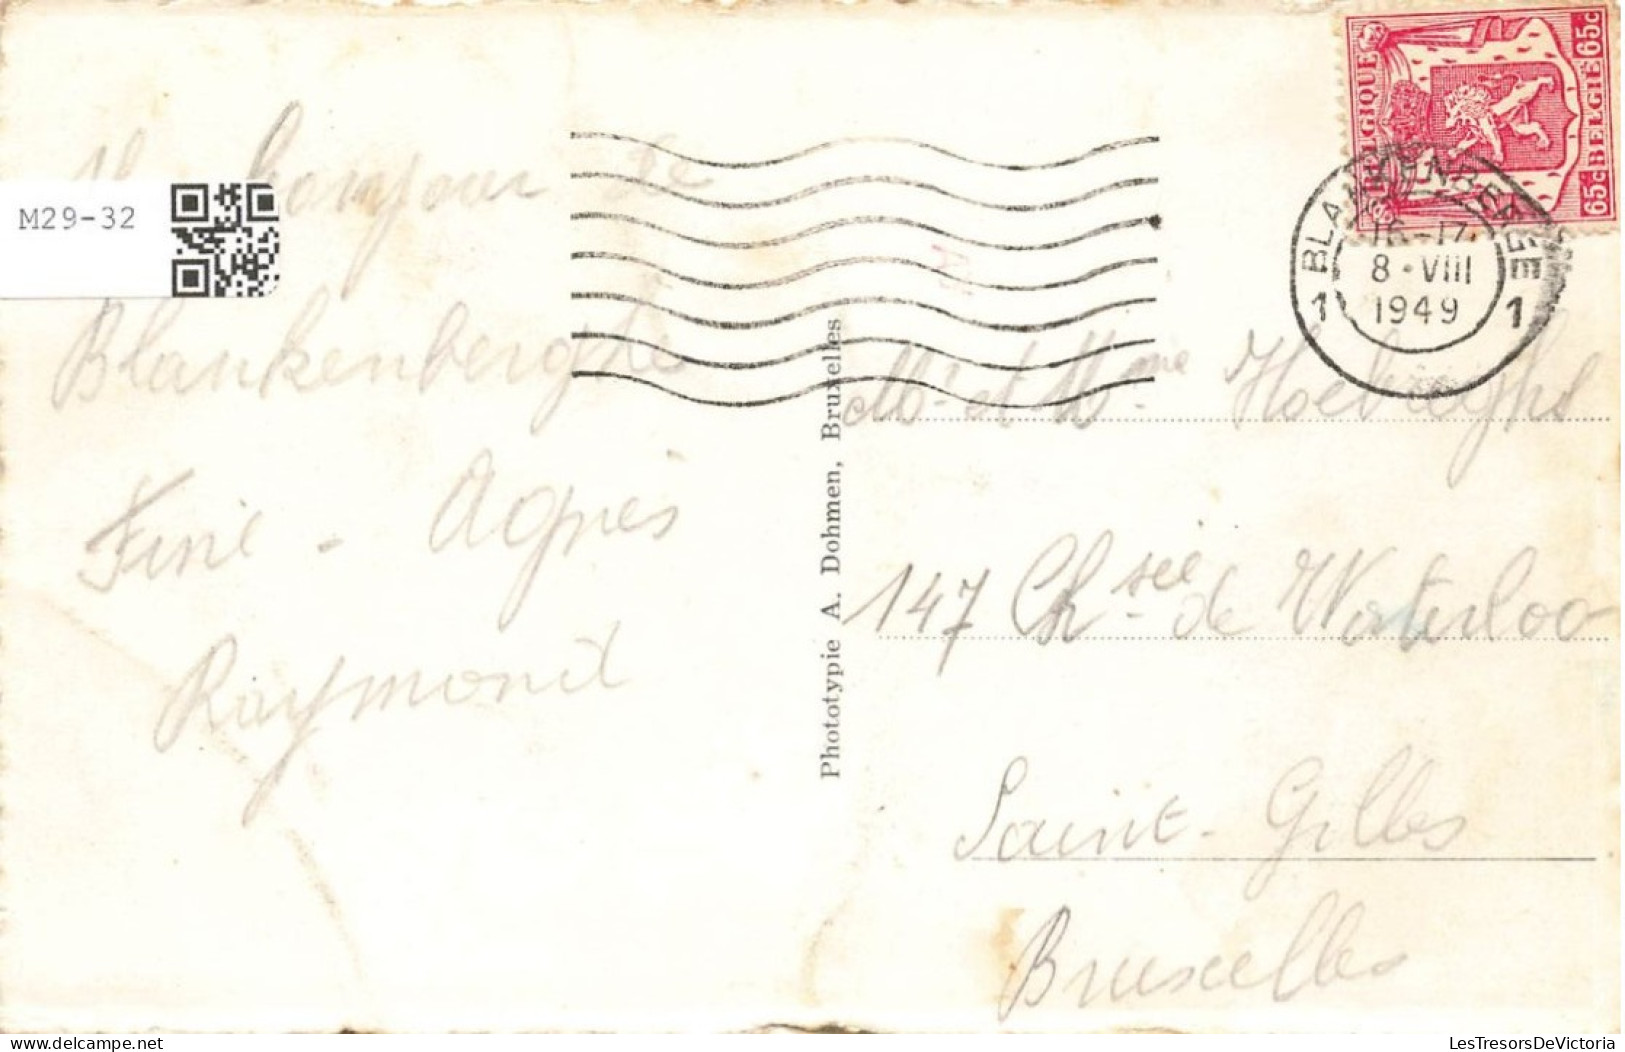 M29-32
Un bonjour de
Blankenberghe
Fine - Agnes
Raymond
Phototypie A. Dohmen, Bruxelles
BELGIQUE
65c BELGIË 65c
BLANKENBERGE
16-17
8·VIII
1949
1 1
Mr et Mme
147 Chsée de Waterloo
Saint-Gilles
Bruxelles
Delcampe.net
LesTresorsDeVictoria